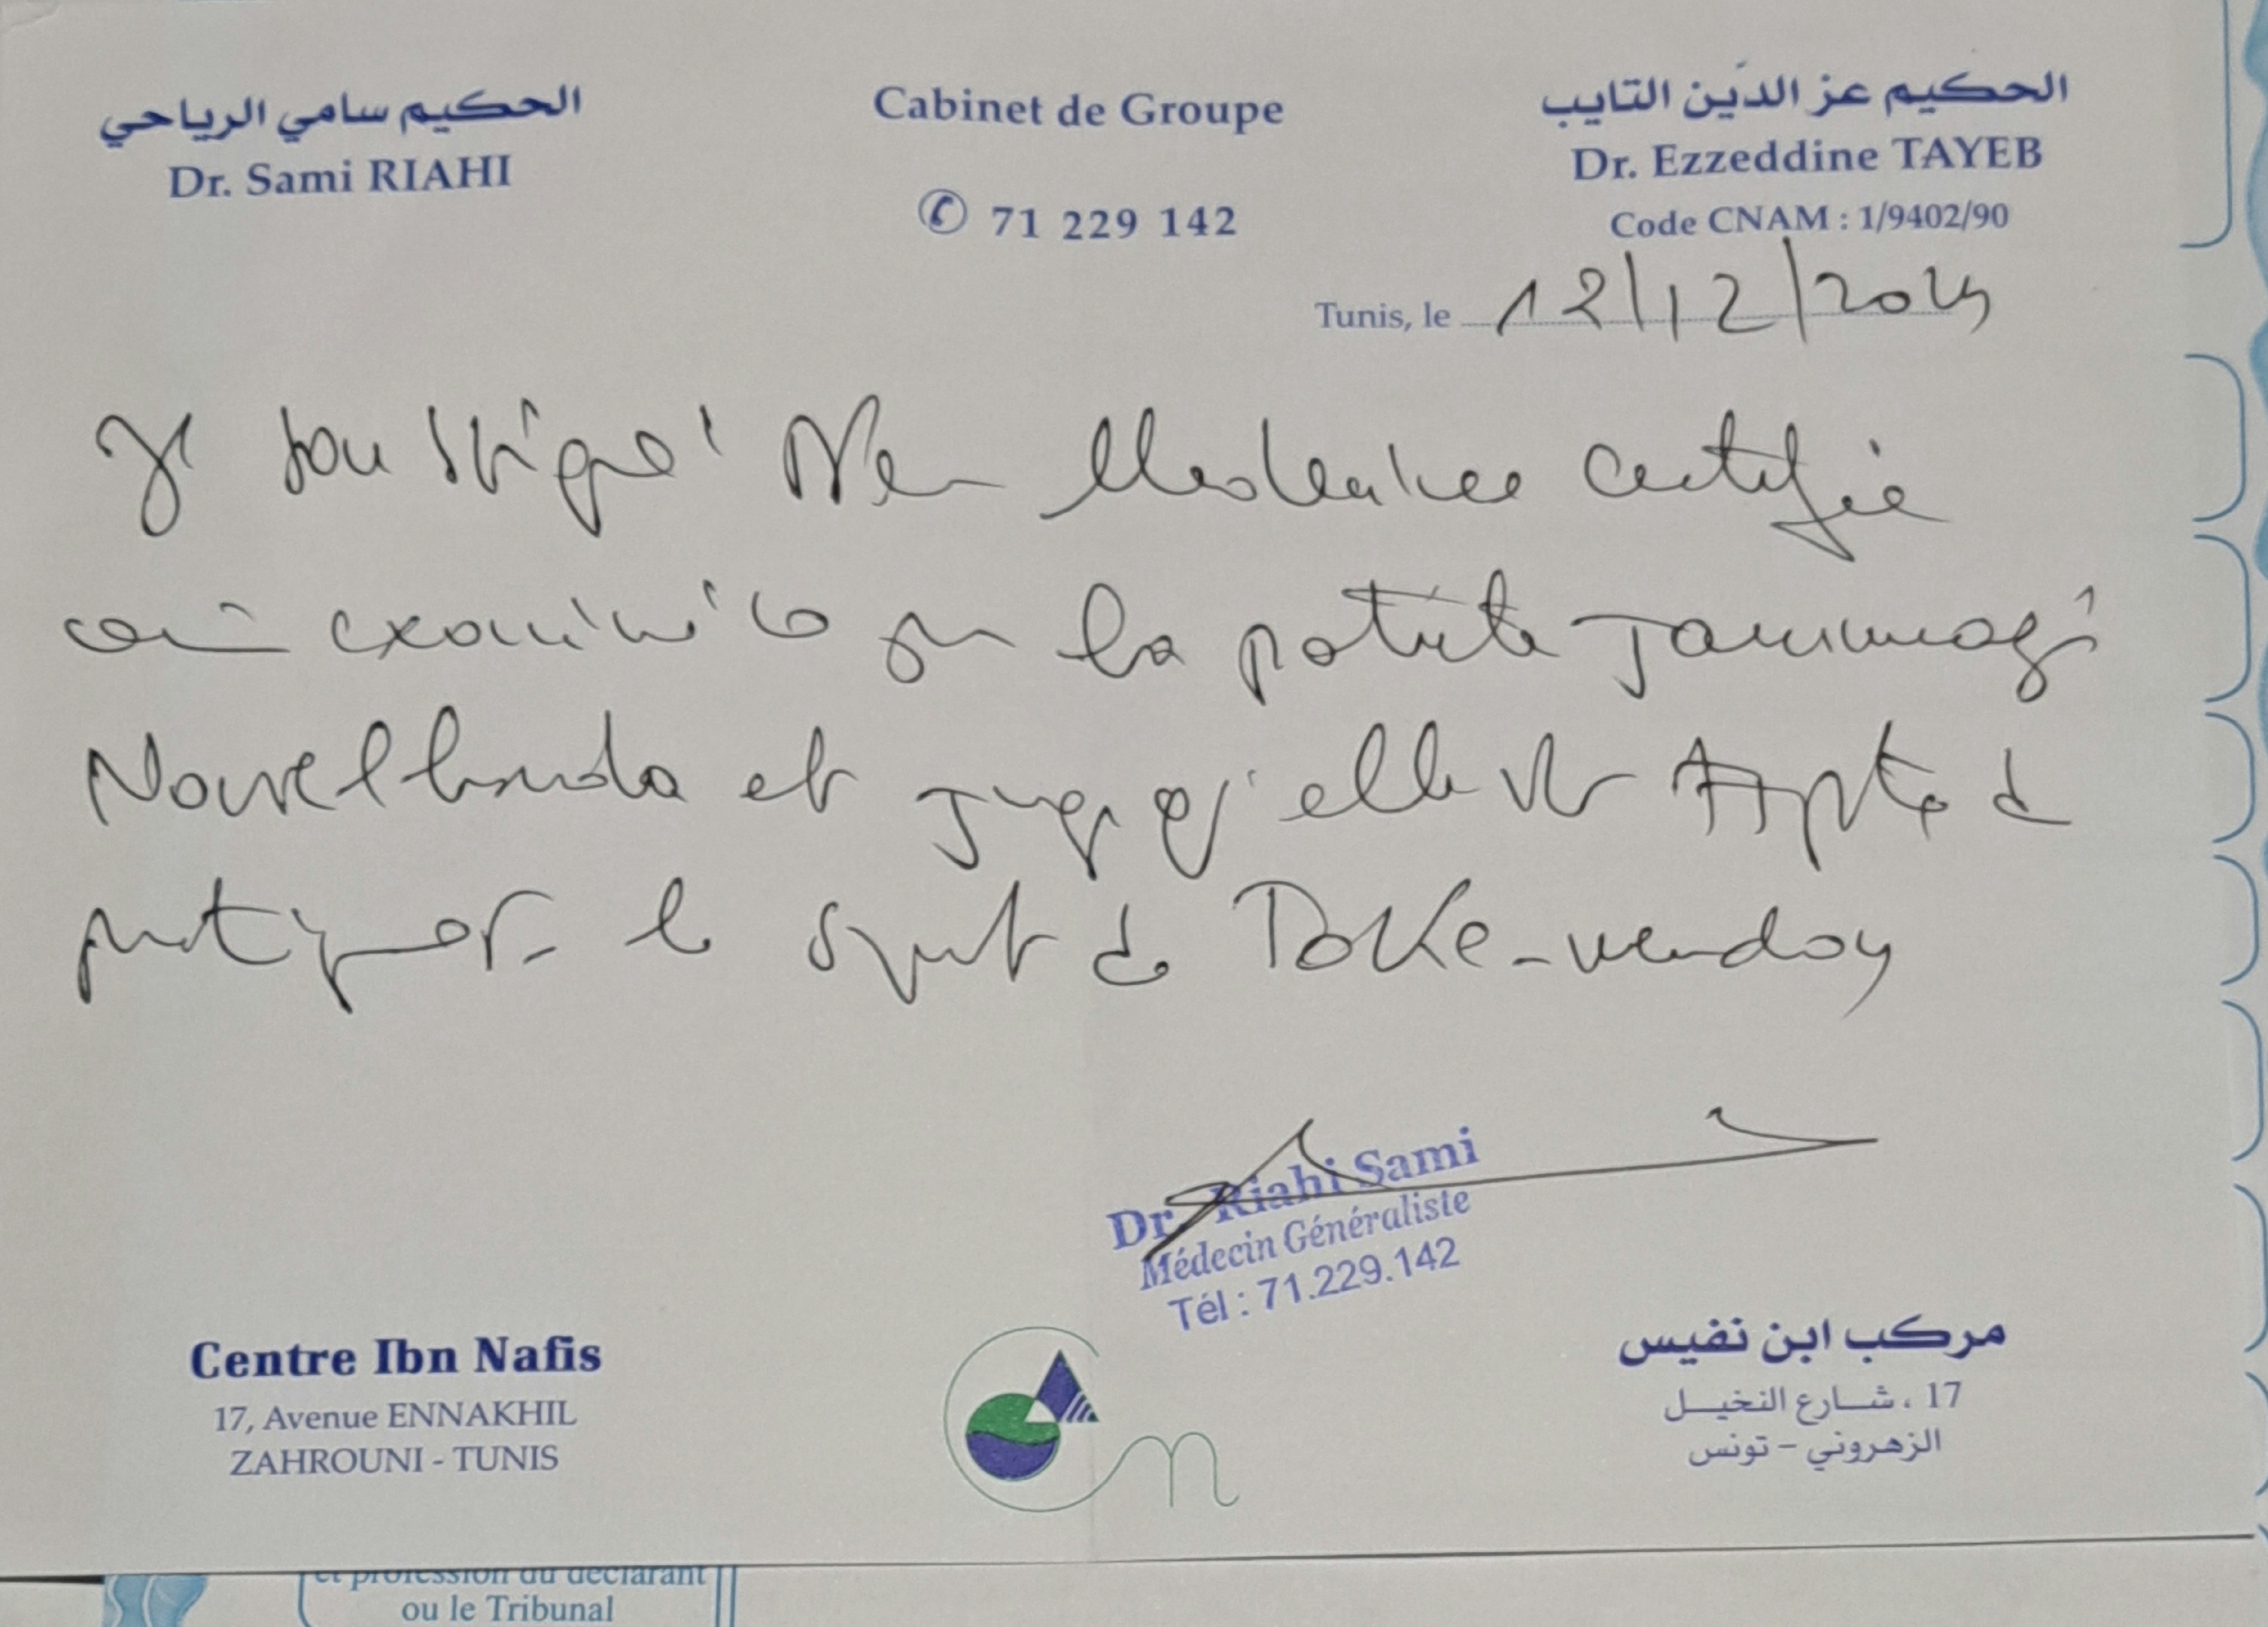 الحكيم سامي الرياحي
Dr. Sami RIAHI
Cabinet de Groupe
✆ 71 229 142
الحكيم عز الدين التايب
Dr. Ezzeddine TAYEB
Code CNAM : 1/9402/90
Tunis, le 12/12/2024
Je soussigné certifie
avoir examiné ce jour la petite Jammazi
Nour el houda et juge qu'elle est Apte à
pratiquer le sport de
Dr. Riahi Sami
Médecin Généraliste
Tél : 71.229.142
Centre Ibn Nafis
17, Avenue ENNAKHIL
ZAHROUNI - TUNIS
مركب ابن نفيس
17 ، شارع النخيل
الزهروني - تونس
et profession du déclarant
ou le Tribunal